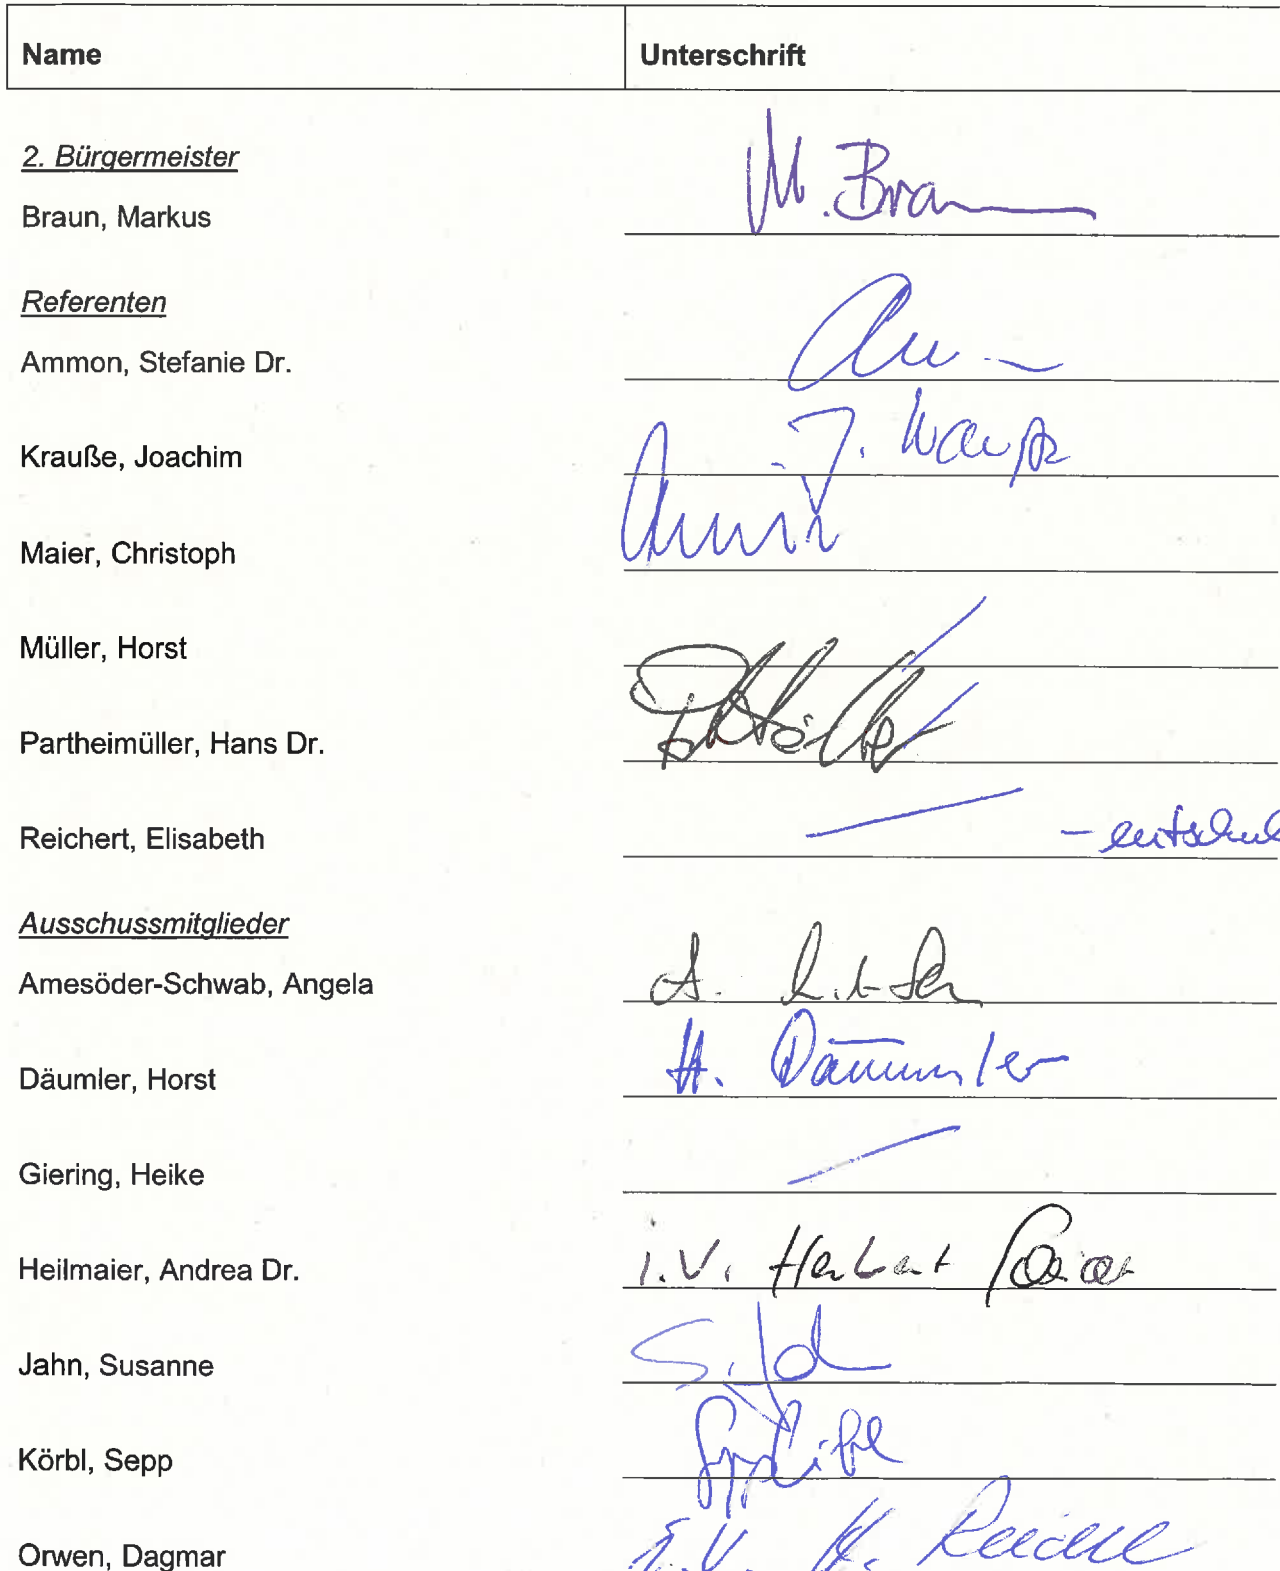 Name Unterschrift
2. Bürgermeister
Braun, Markus M. Braun
Referenten
Ammon, Stefanie Dr.
Krauße, Joachim J. Krauße
Maier, Christoph
Müller, Horst
Partheimüller, Hans Dr.
Reichert, Elisabeth - entschul
Ausschussmitglieder
Amesöder-Schwab, Angela A.
Däumler, Horst H. Däumler
Giering, Heike
Heilmaier, Andrea Dr. i.V. Herbert
Jahn, Susanne S. Jah
Körbl, Sepp Sepp Körbl
Orwen, Dagmar i.V. H.